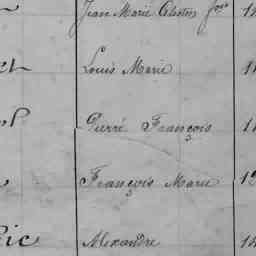 Jean Marie Celestin fois 14
et Louis Marie
Pierré François
François Marie 12
ic Alexandre 14